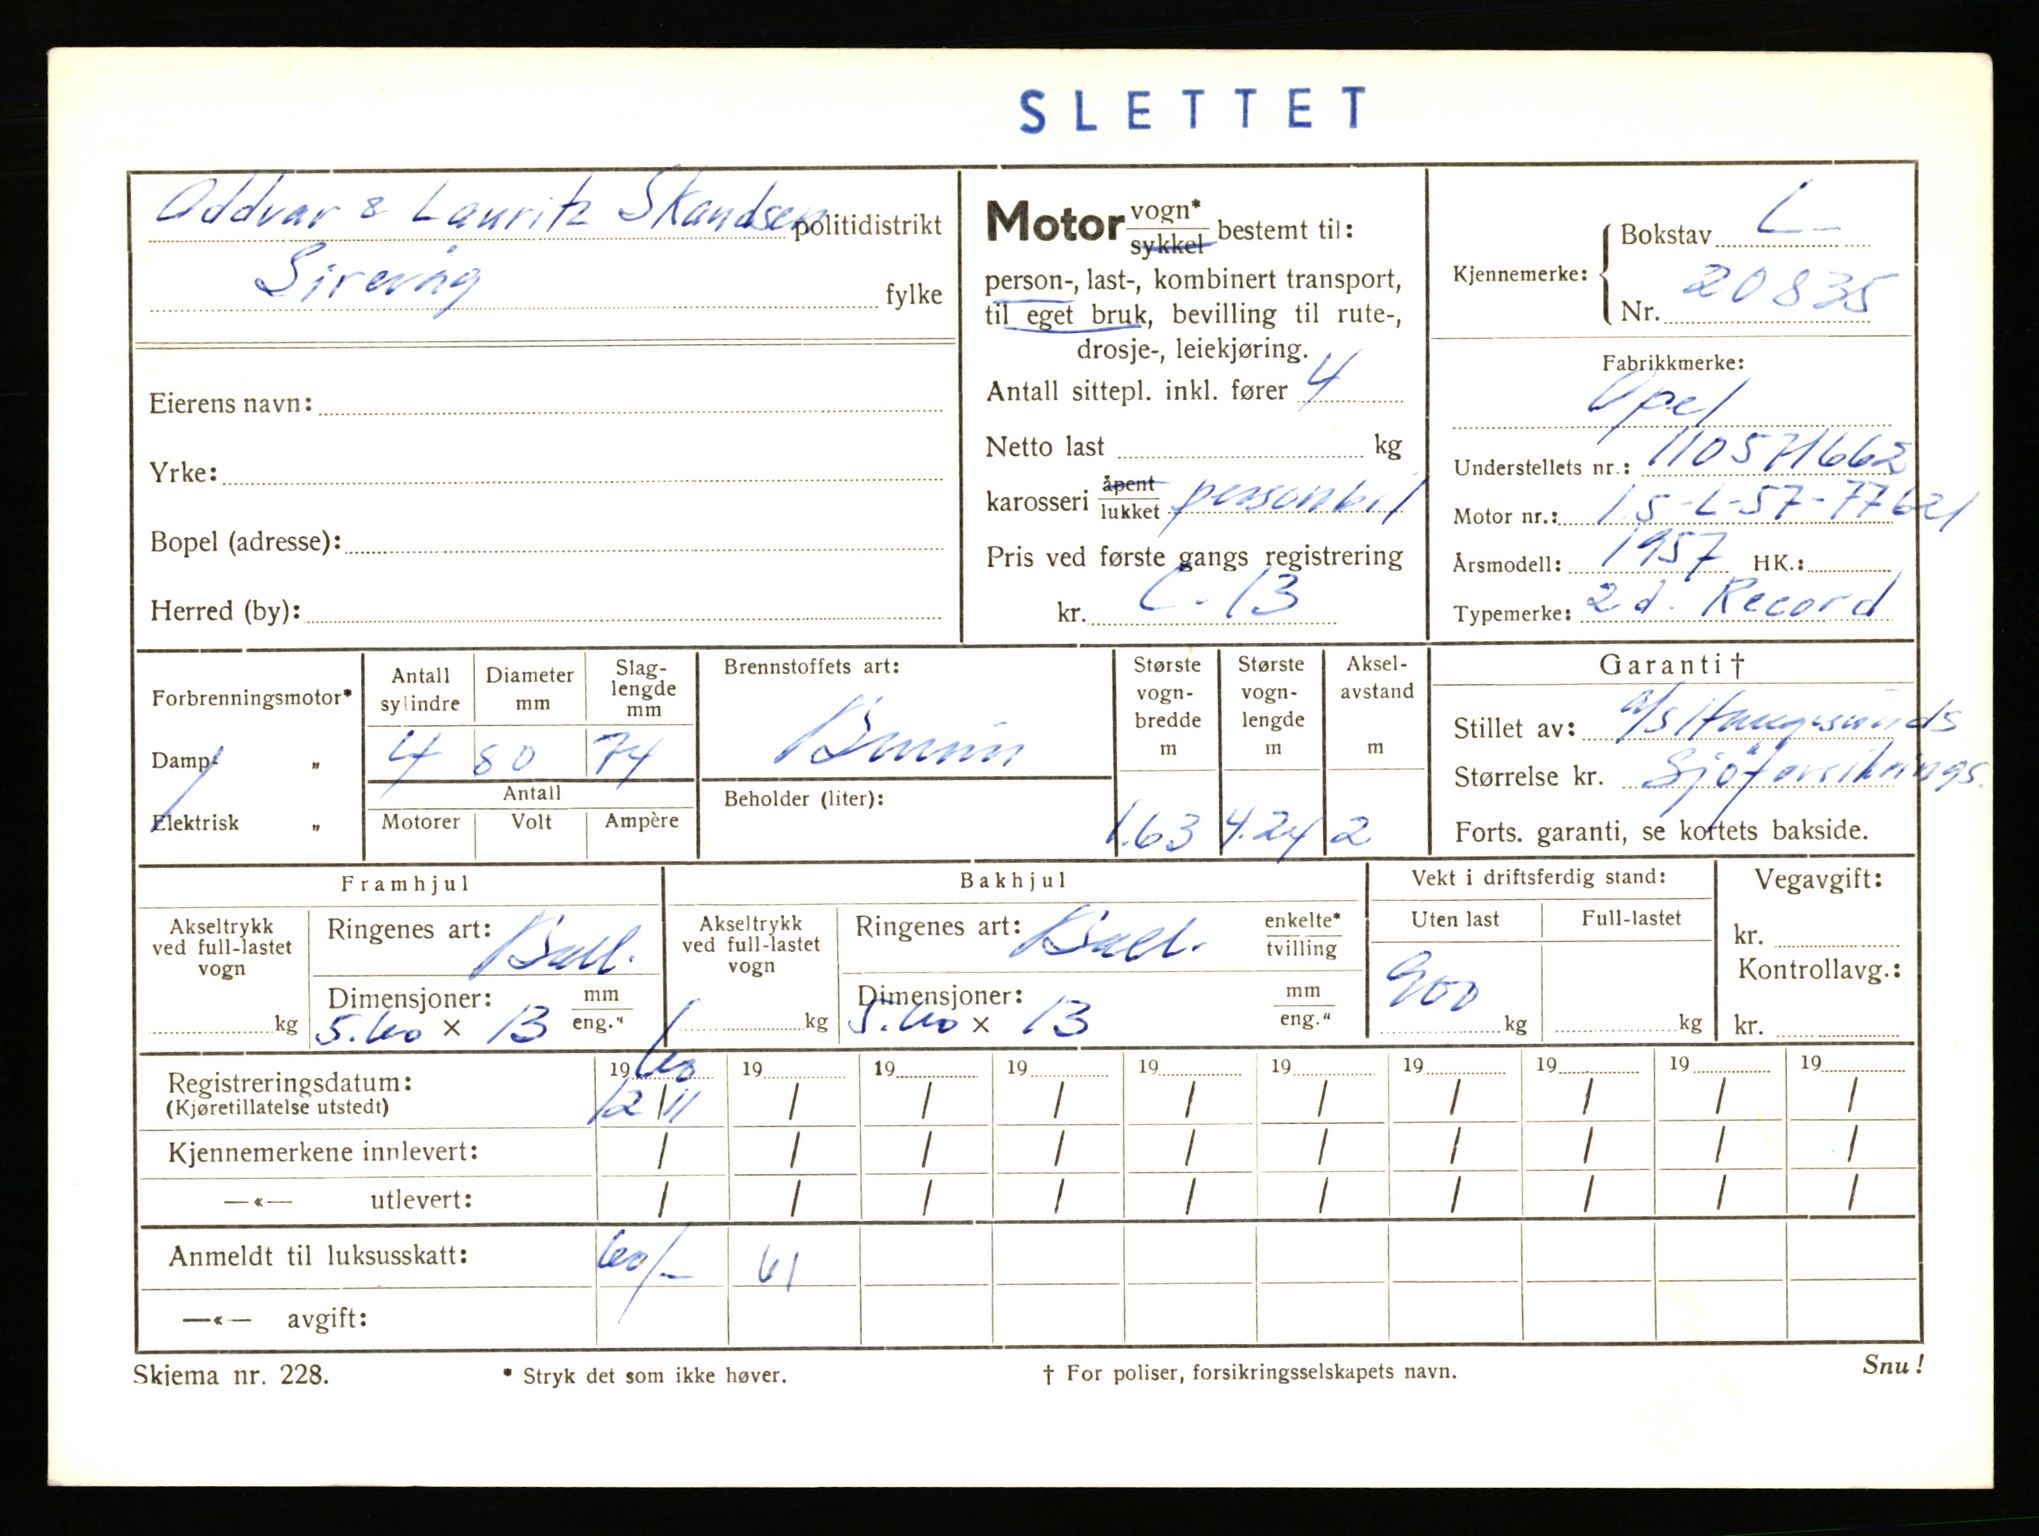 SLETTET
Oddvar & Lauritz Skandsen politidistrikt
Sirevåg fylke
Eierens navn:
Yrke:
Bopel (adresse):
Herred (by):
Motor vogn*
sykkel bestemt til:
person-, last-, kombinert transport,
til eget bruk, bevilling til rute-,
drosje-, leiekjøring.
Antall sittepl. inkl. fører 4
Netto last kg
karosseri åpent
lukket personbil
Pris ved første gangs registrering
kr. C-13
Kjennemerke:
Bokstav L-
Nr. 20835
Fabrikkmerke:
Opel
Understellets nr.: 110571662
Motor nr.: 1.5-L-57-77621
Årsmodell: 1957 HK.:
Typemerke: 2 d. Record
Forbrenningsmotor*
Damp- „
Elektrisk „
Antall sylindre Diameter mm Slaglengde mm
4 80 74
Antall
Motorer Volt Ampère
Brennstoffets art:
Bensin
Beholder (liter):
Største vognbredde m
1.63
Største vognlengde m
4.24
Akselavstand m
2
Garanti †
Stillet av: A/S Haugesunds
Størrelse kr. Sjøforsikrings.
Forts. garanti, se kortets bakside.
Framhjul
Akseltrykk ved full-lastet vogn
kg
Ringenes art: Ball.
Dimensjoner: mm
5.60 × 13 eng."
Bakhjul
Akseltrykk ved full-lastet vogn
kg
Ringenes art: Ball. enkelte*
tvilling
Dimensjoner: mm
5.60 × 13 eng."
Vekt i driftsferdig stand:
Uten last Full-lastet
900 kg kg
Vegavgift:
kr.
Kontrollavg.:
kr.
Registreringsdatum: 1960 19 19 19 19 19 19 19 19 19
(Kjøretillatelse utstedt) 12/11 / / / / / / / / /
Kjennemerkene innlevert: / / / / / / / / / /
—«— utlevert: / / / / / / / / / /
Anmeldt til luksusskatt: 60/- 61
—«— avgift:
Skjema nr. 228. * Stryk det som ikke høver. † For poliser, forsikringsselskapets navn. Snu!